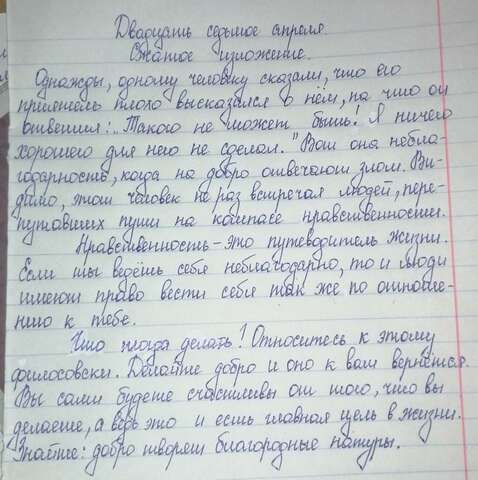 Двадцать седьмое апреля.
Сжатое изложение.
Однажды, одному человеку сказали, что его
приятель плохо высказался о нём, на что он
ответил: „Такого не может быть! Я ничего
хорошего для него не сделал." Вот она небла-
годарность, когда на добро отвечают злом. Ви-
димо, этот человек не раз встречал людей, пере-
путавших пути на компасе нравственности.
Нравственность - это путеводитель жизни.
Если ты ведёшь себя неблагодарно, то и люди
имеют право вести себя так же по отноше-
нию к тебе.
Что тогда делать! Относитесь к этому
философски. Делайте добро и оно к вам вернётся.
Вы сами будете счастливы от того, что вы
делаете, а ведь это и есть главная цель в жизни.
Знайте: добро творят благородные натуры.